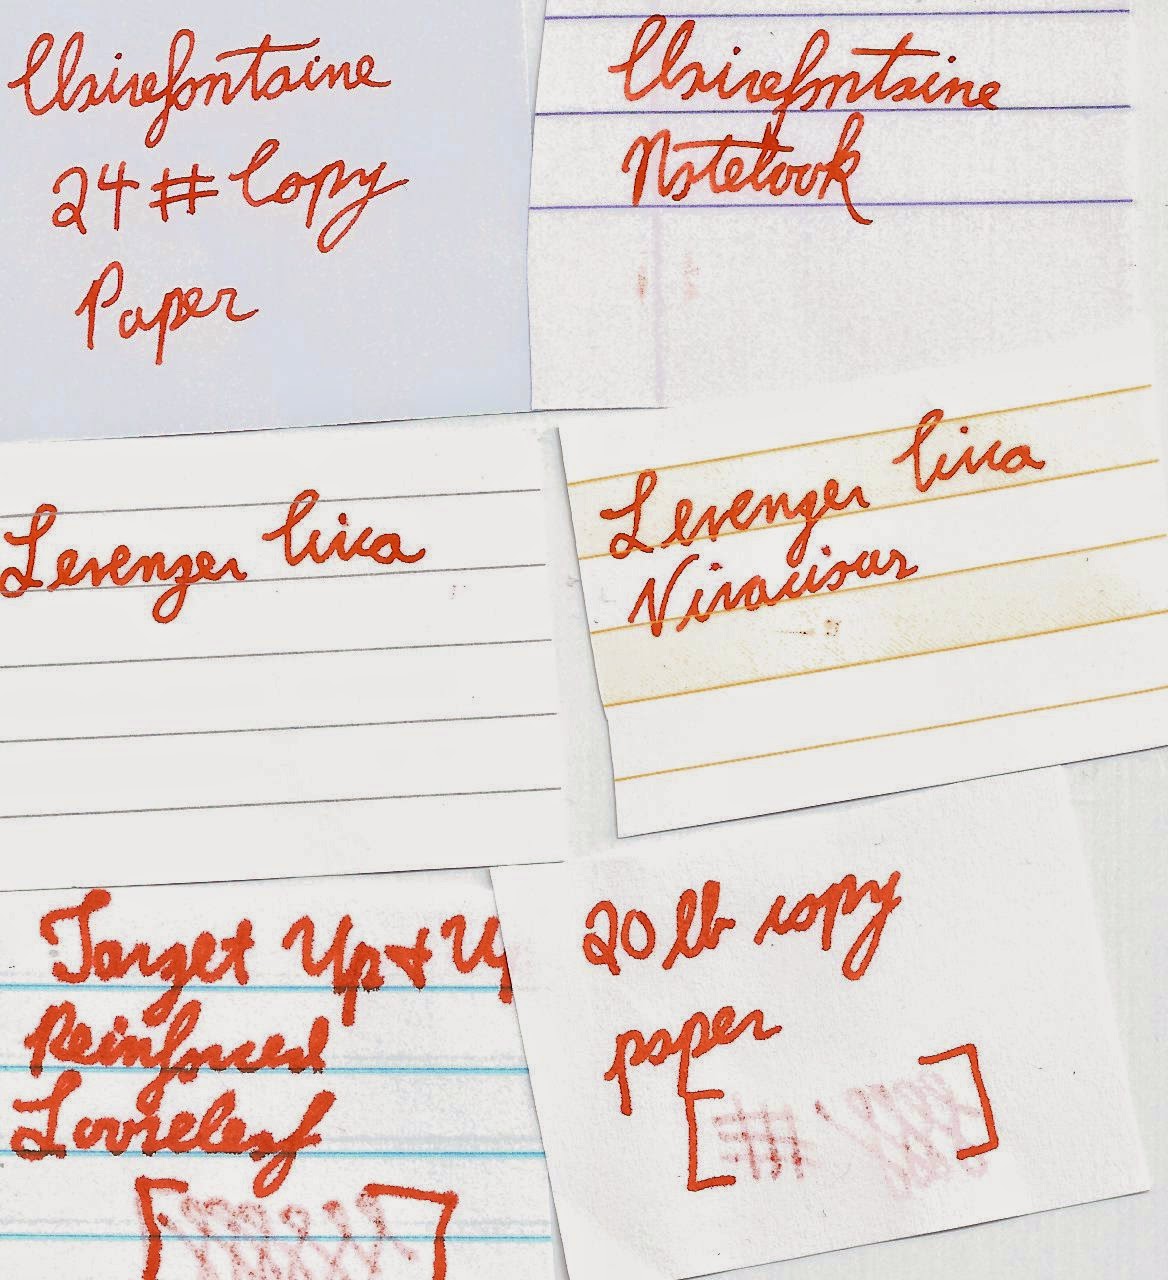 Clairefontaine
24# Copy
Paper
Clairefontaine
Notebook
Levenger Circa
Levenger Circa
Vivacious
Target Up & Up
Reinforced
Looseleaf
20 lb copy
paper